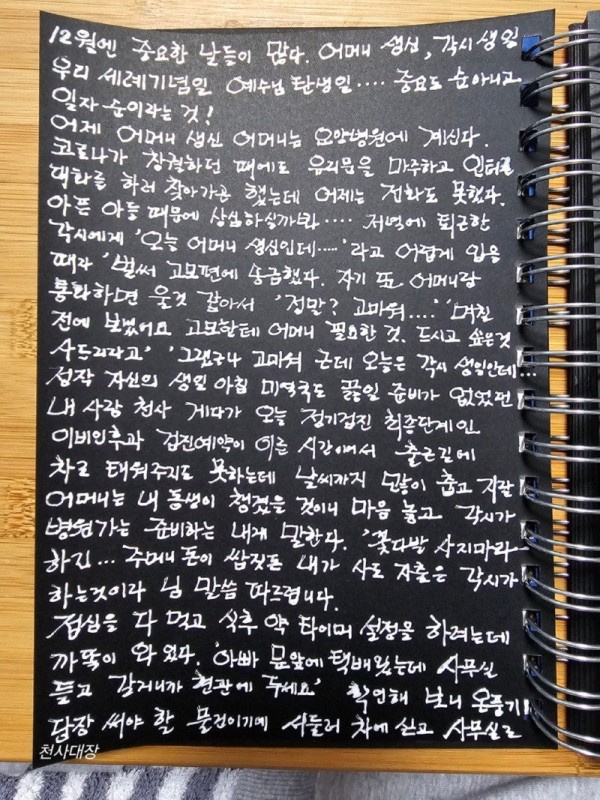 12월엔 중요한 날들이 많다. 어머니 생신, 각시 생일
우리 세례기념일 예수님 탄생일.... 중요도 순 아니고
일자 순이라는 것!
어제 어머니 생신 어머니는 요양병원에 계신다.
코로나가 창궐하던 때에도 유리문을 마주하고 인터폰
대화를 하러 찾아가곤 했는데 어제는 전화도 못했다.
아픈 아들 때문에 상심하실까봐.... 저녁에 퇴근한
각시에게 '오늘 어머니 생신인데.....'라고 어렵게 입을
떼자 '벌써 고모편에 송금했다. 자기 또 어머니랑
통화하면 울것 같아서 '정말? 고마워....' '며칠
전에 보냈어요 고모한테 어머니 필요한 것. 드시고 싶은것
사드리라고' '그랬구나 고마워 근데 오늘은 각시 생일인데...
정작 자신의 생일 아침 미역국도 끓일 준비가 없었던
내 사랑 천사 게다가 오늘 정기검진 최종단계인
이비인후과 검진예약이 이른 시간이어서 출근길에
차로 태워주지도 못하는데 날씨까지 춥고 지랄
어머니는 내 동생이 챙겼을 것이니 마음 놓고 각시가
병원가는 준비하는 내게 말한다. '꽃다발 사지마라
하긴... 주머니 돈이 쌈짓돈 내가 사도 지출은 각시가
하는것이라 님 말씀 따르렵니다.
점심을 다 먹고 식후 약 타이머 설정을 하려는데
까뚝이 와 있다. '아빠 문앞에 택배왔는데 사무실
들고 갈거니까 현관에 두세요' 확인해 보니 온풍기!
당장 써야 할 물건이기에 서둘러 차에 싣고 사무실로
천사대장